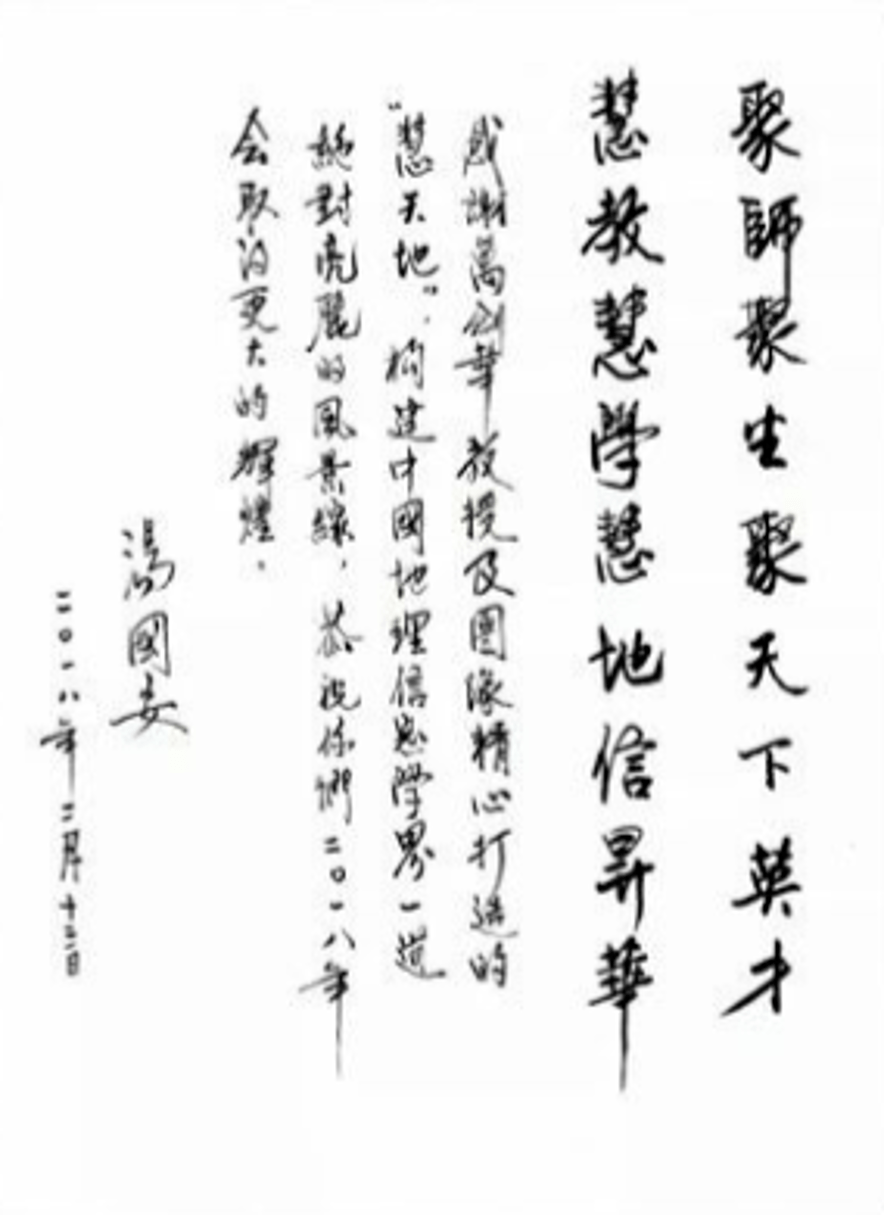 聚師聚生聚天下英才
慧教慧學慧地信昇華
感謝萬剑華教授及團隊精心打造的
“慧天地”，构建中國地理信息学界一道
絕對亮麗的風景線，恭祝你們二〇一八年
会取得更大的輝煌．
湯國安
二〇一八年二月十三日